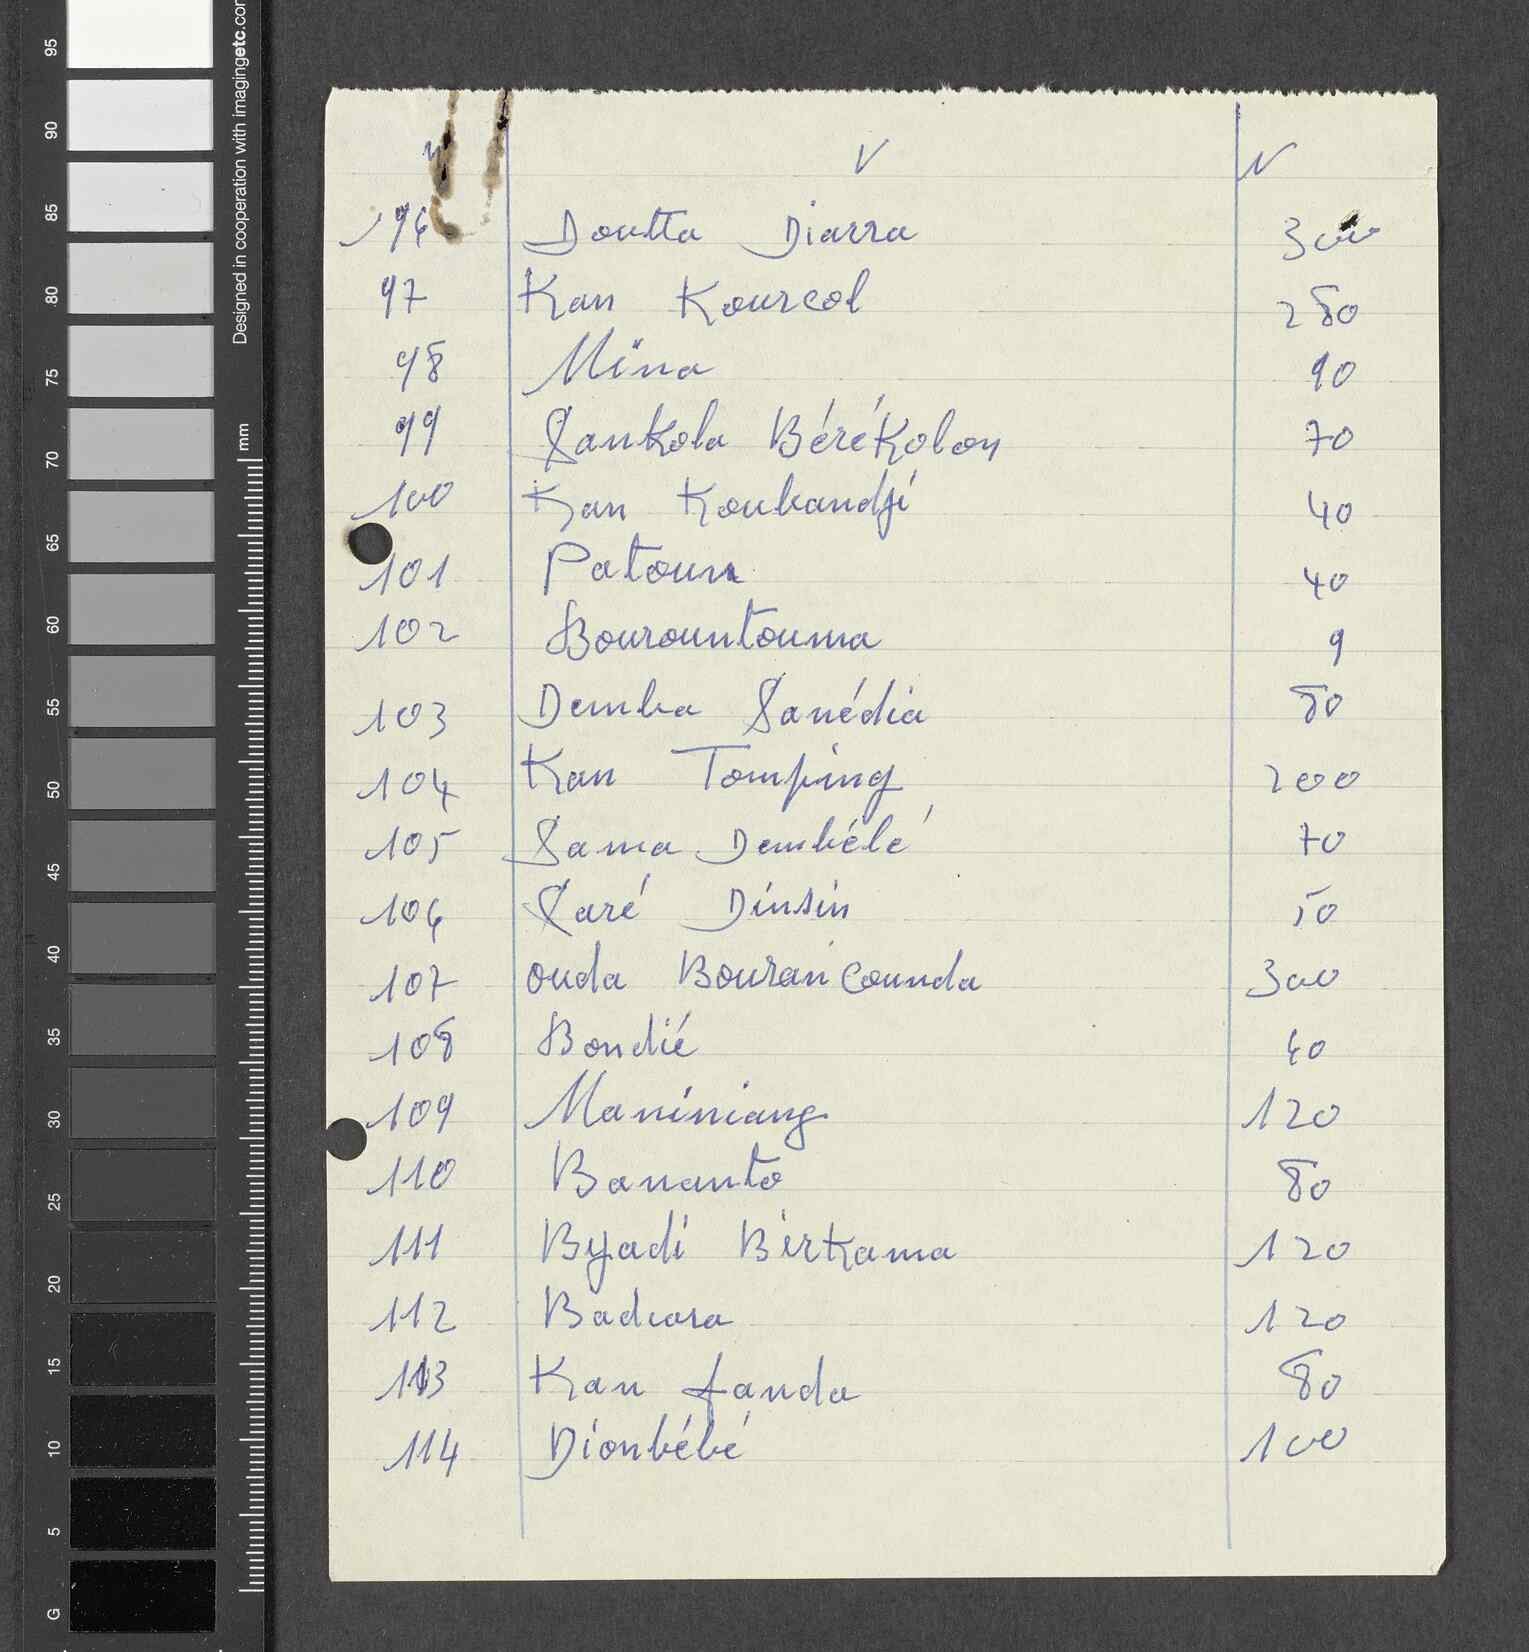 n V N
96 Doutta Diarra 300
97 Kan Kourcol 280
98 Mina 90
99 Sankola BéréKolon 70
100 Kan Koubandji 40
101 Patoun 40
102 Bourountouma 9
103 Demba Sanédia 80
104 Kan Tomping 200
105 Sama Dembélé 70
106 Saré Dinsin 50
107 ouda Bouran Counda 300
108 Bondié 40
109 Maniniang 120
110 Bananto 80
111 Byadi Birkama 120
112 Badiara 120
113 Kan fanda 80
114 Dionbébé 100
Designed in cooperation with imagingetc.com
mm
95
90
85
80
75
70
65
60
55
50
45
40
35
30
25
20
15
10
5
G